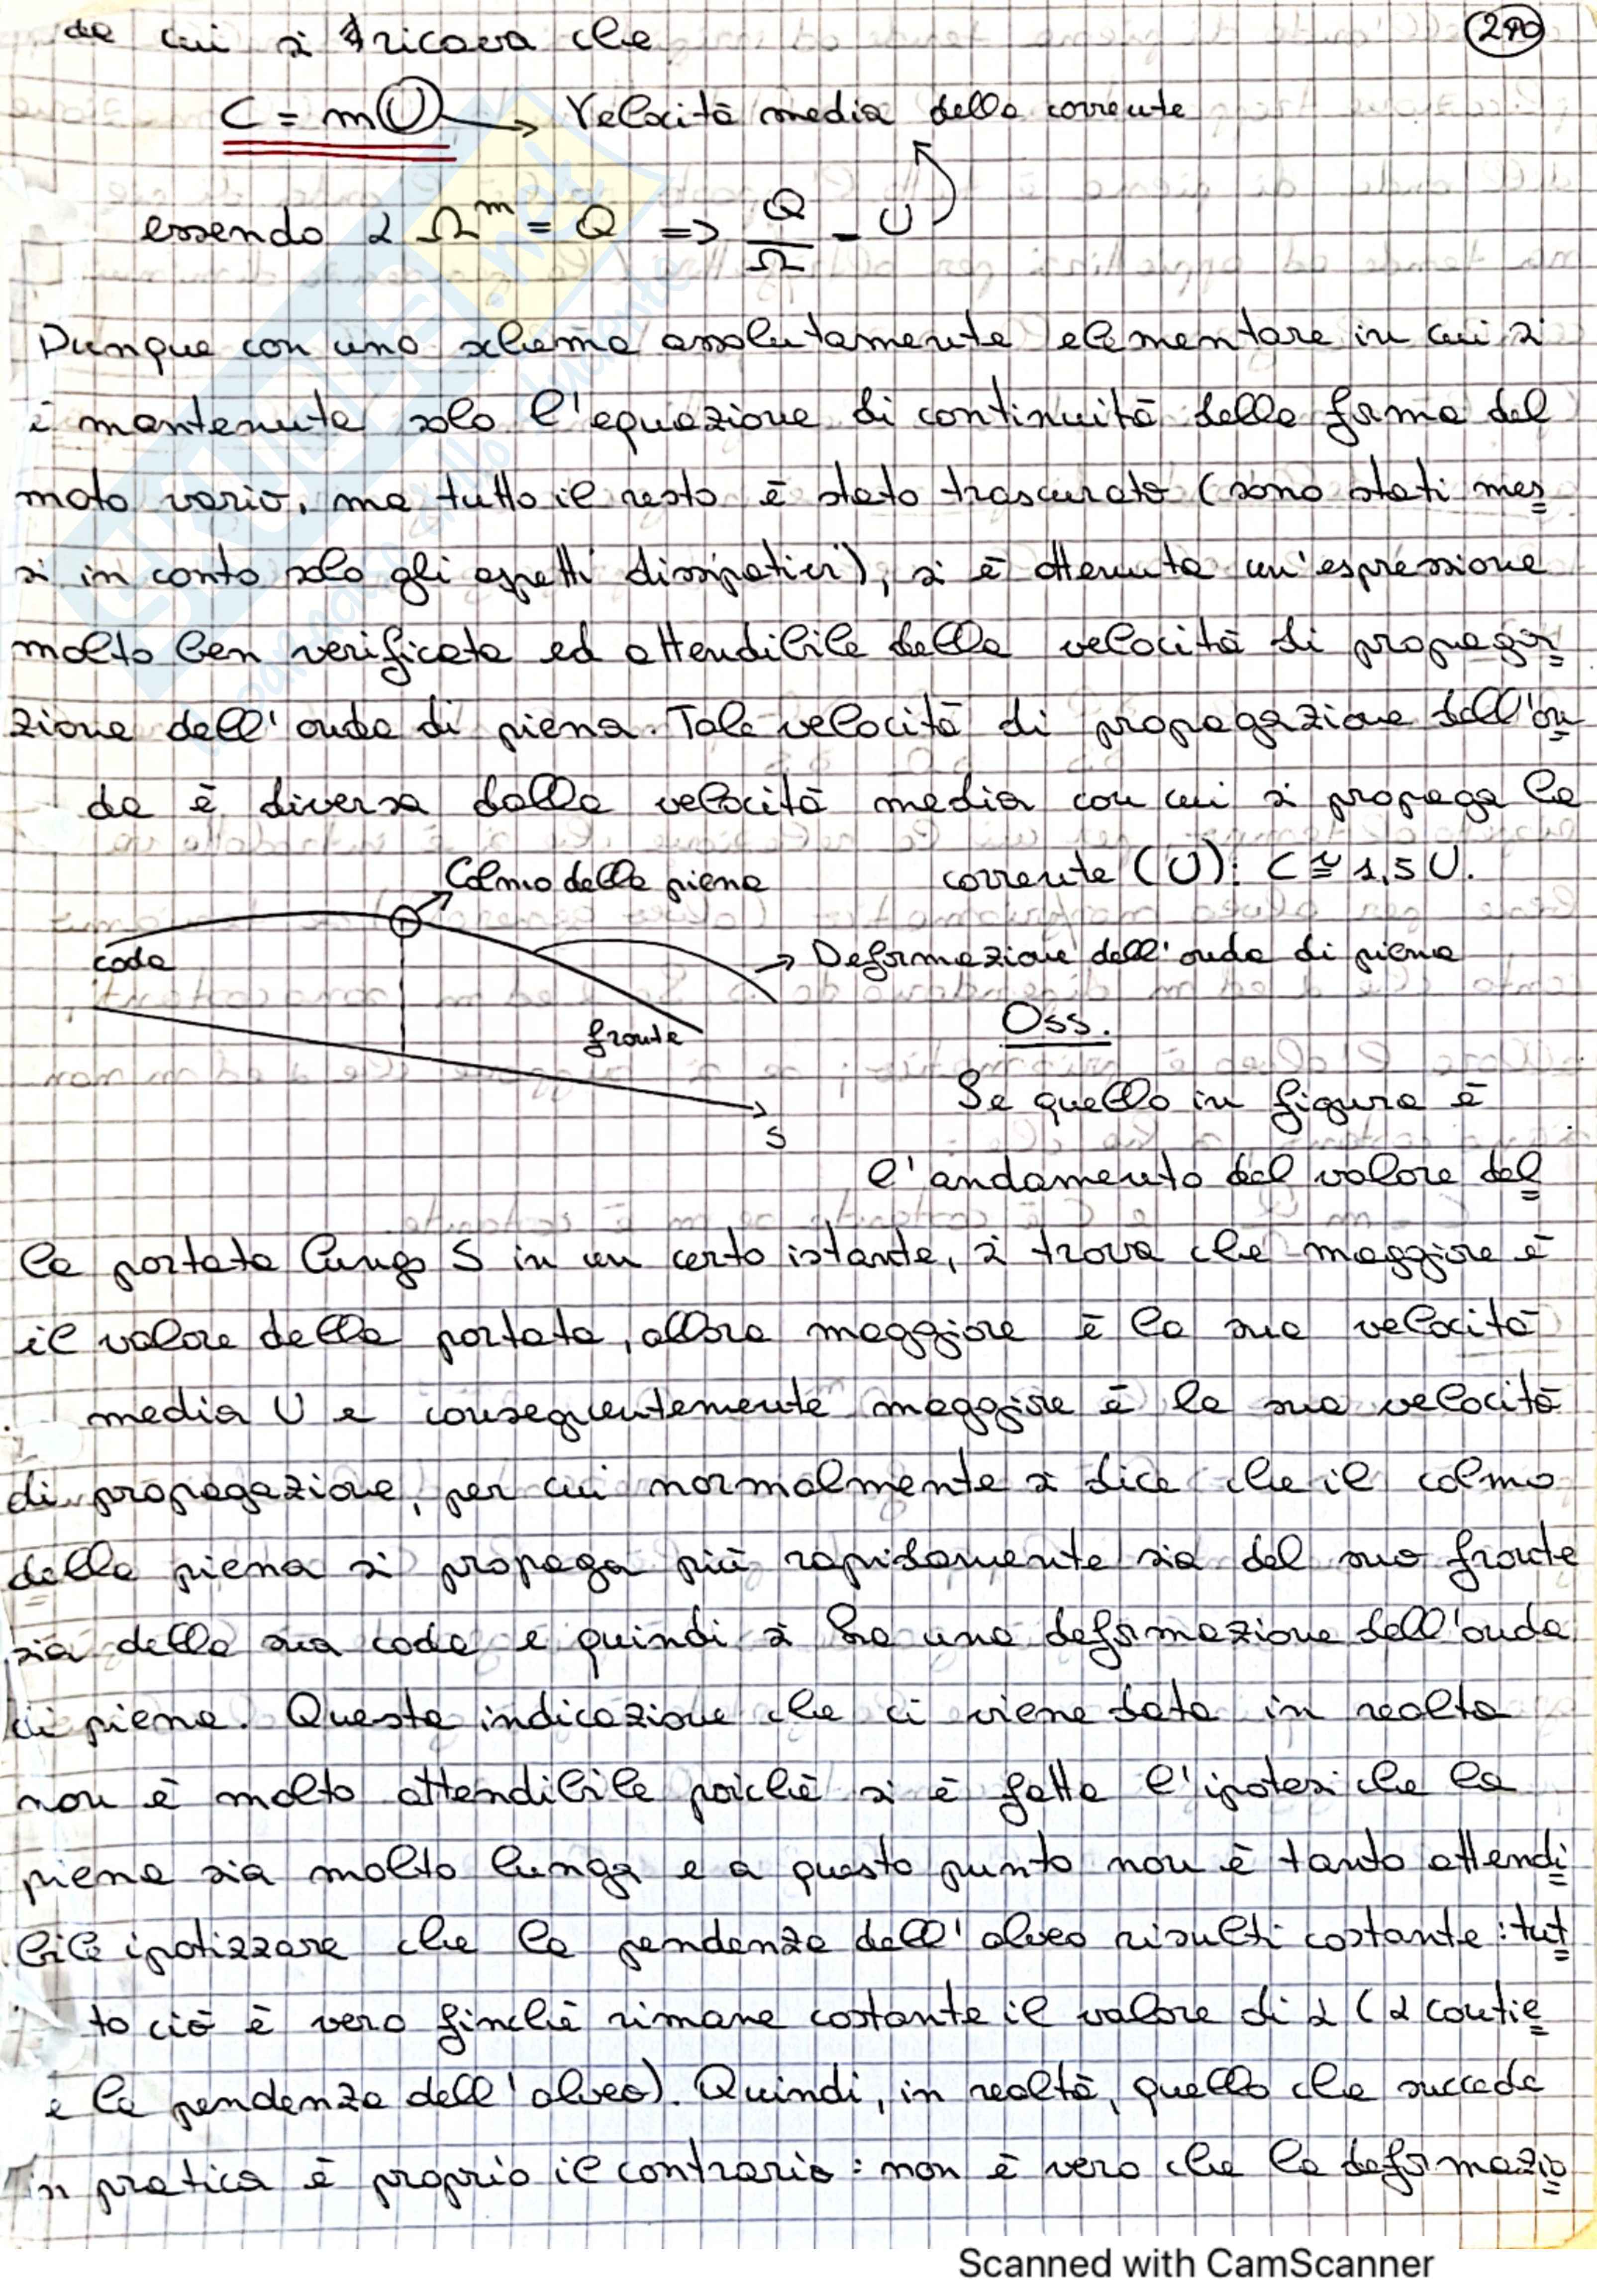 da cui si ricava che
290
C = mU → Velocità media della corrente
essendo α Ω^m = Q => Q/Ω = U
Dunque con uno schema assolutamente elementare in cui si
è mantenuta solo l'equazione di continuità della forma del
moto vario, ma tutto il resto è stato trascurato (sono stati mes
si in conto solo gli aspetti dissipativi), si è ottenuta un'espressione
molto ben verificata ed attendibile della velocità di propaga
zione dell'onda di piena. Tale velocità di propagazione dell'on
da è diversa dalla velocità media con cui si propaga la
corrente (U): C ≅ 1,5 U.
Colmo della piena
coda
→ Deformazione dell'onda di piena
fronte
S
Oss.
Se quello in figura è
l'andamento del valore del
la portata lungo S in un certo istante, si trova che maggiore è
il valore della portata, allora maggiore è la sua velocità
media U e conseguentemente maggiore è la sua velocità
di propagazione, per cui normalmente si dice che il colmo
della piena si propaga più rapidamente sia del suo fronte
sia della sua coda e quindi si ha una deformazione dell'onda
di piena. Questa indicazione che ci viene data in realtà
non è molto attendibile poichè si è fatta l'ipotesi che la
piena sia molto lunga e a questo punto non è tanto attendi
bile ipotizzare che la pendenza dell'alveo risulti costante: tut
to ciò è vero finchè rimane costante il valore di α (α contie
e la pendenza dell'alveo). Quindi, in realtà, quello che succede
in pratica è proprio il contrario: non è vero che la deformazio
Scanned with CamScanner
SKUOLA.net